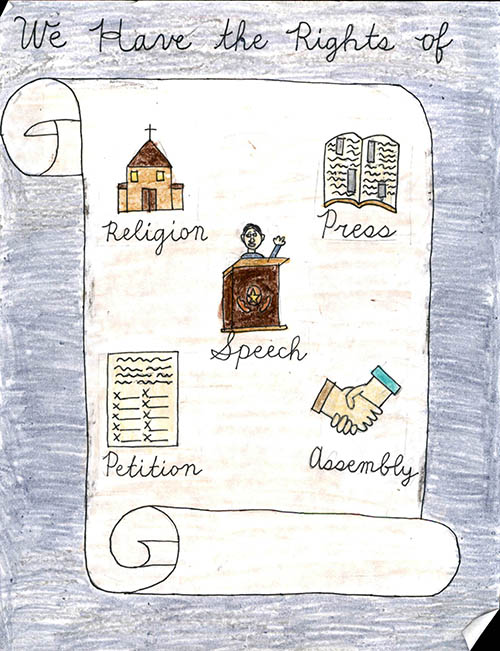 We Have the Rights of
Religion
Press
Speech
Petition
Assembly